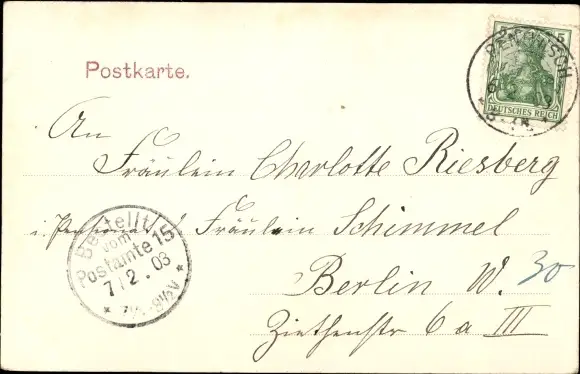 Postkarte.
5 5
DEUTSCHES REICH
An
Fräulein Charlotte Riesberg
i. Pensionat Fräulein Schimmel
Berlin W. 30
Ziethenstr 6 a III
Bestellt
vom
Postamte 15
7/2.03
* 7½-9½V *